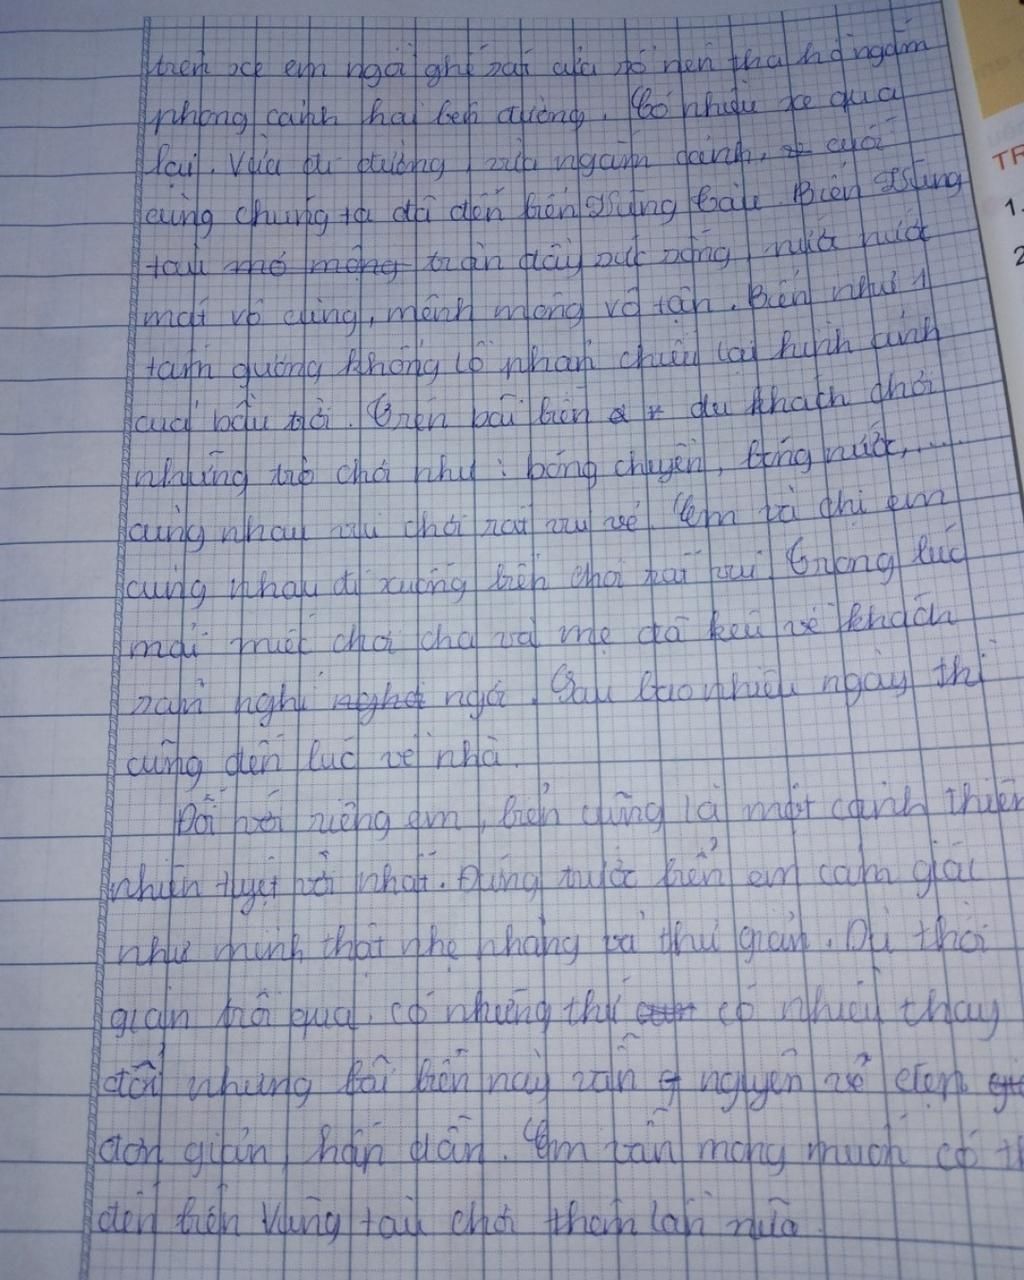 trên xe em ngồi ghế sát cửa sổ nên tha hồ ngắm
phong cảnh hai bên đường. Có nhiều xe qua
lại. Vừa đi đường, vừa ngắm cảnh, cuối
cùng chúng ta đã đến biển Vũng tàu. Biển Vũng
tàu mở mộng tràn đầy sức sống, nước
mát vô cùng, mênh mông vô tận. Biển như 1
tấm gương khổng lồ phản chiếu lại hình ảnh
của bầu trời. Trên bãi biển du khách chơi
những trò chơi như : bóng chuyền, bóng nước,....
cùng nhau vui chơi rất vui vẻ. Em và chị em
cùng nhau đi xuống biển chơi rất vui. Trong lúc
mãi miết chơi cha và mẹ đã kêu về khách
sạn nghỉ ngơi. Sau bao nhiêu ngày thì
cũng đến lúc về nhà.
Đối với riêng em, biển cũng là một cảnh thiên
nhiên tuyệt vời nhất. Đứng trước biển em cảm giác
như mình thật nhẹ nhàng và thư giản. Dù thời
gian trôi qua, có những thứ có nhiều thay
đổi nhưng bãi biển này vẫn nguyên vẻ đẹp
đơn giản, hấp dẫn. Em vẫn mong muốn có th
đến biển Vũng tàu chơi thêm lần nữa.